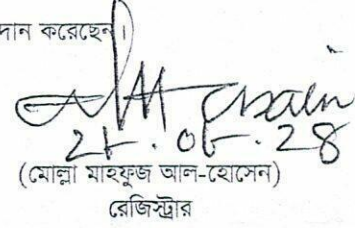 দান করেছেন।
২৮.০৮.২৪
(মোল্লা মাহফুজ আল-হোসেন)
রেজিস্ট্রার